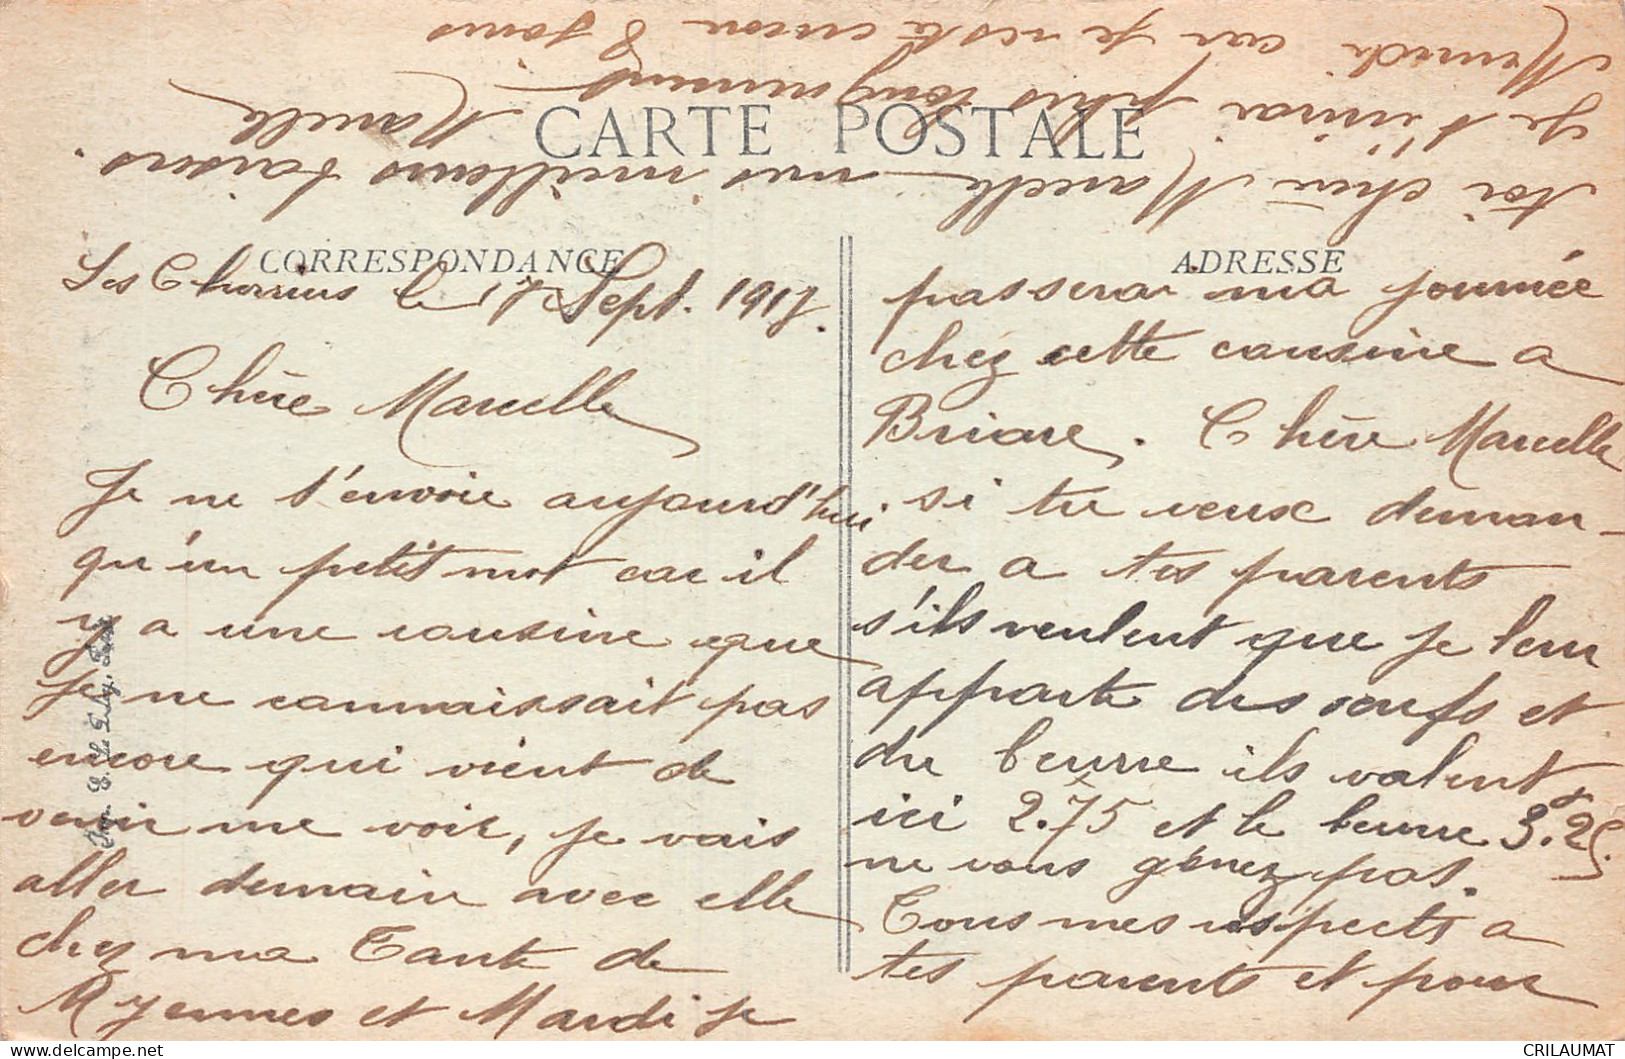 CARTE POSTALE
CORRESPONDANCE
le 17 Sept. 1917.
Chère Marcelle
Je ne t'envoie aujourd'hui
qu'un petit mot car il
y a une cousine que
je ne connaissait pas
encore qui vient de
venir me voir, je vais
aller demain avec elle
chez ma Tante de
Myennes et Mardi je
ADRESSE
passerai ma journée
chez cette cousine a
Briare. Chère Marcelle
si tu veux deman-
der a tes parents
s'ils veulent que je leur
apporte des oeufs et
du beurre ils valent
ici 2.75 et le beurre 3.25.
ne vous gênez pas.
Tous mes respects a
tes parents et pour
toi chère Marcelle mes meilleurs baisers.
Marcelle
Je t'écrirai plus longuement
Mercredi car je reste encore 8 jours
CRILAUMAT